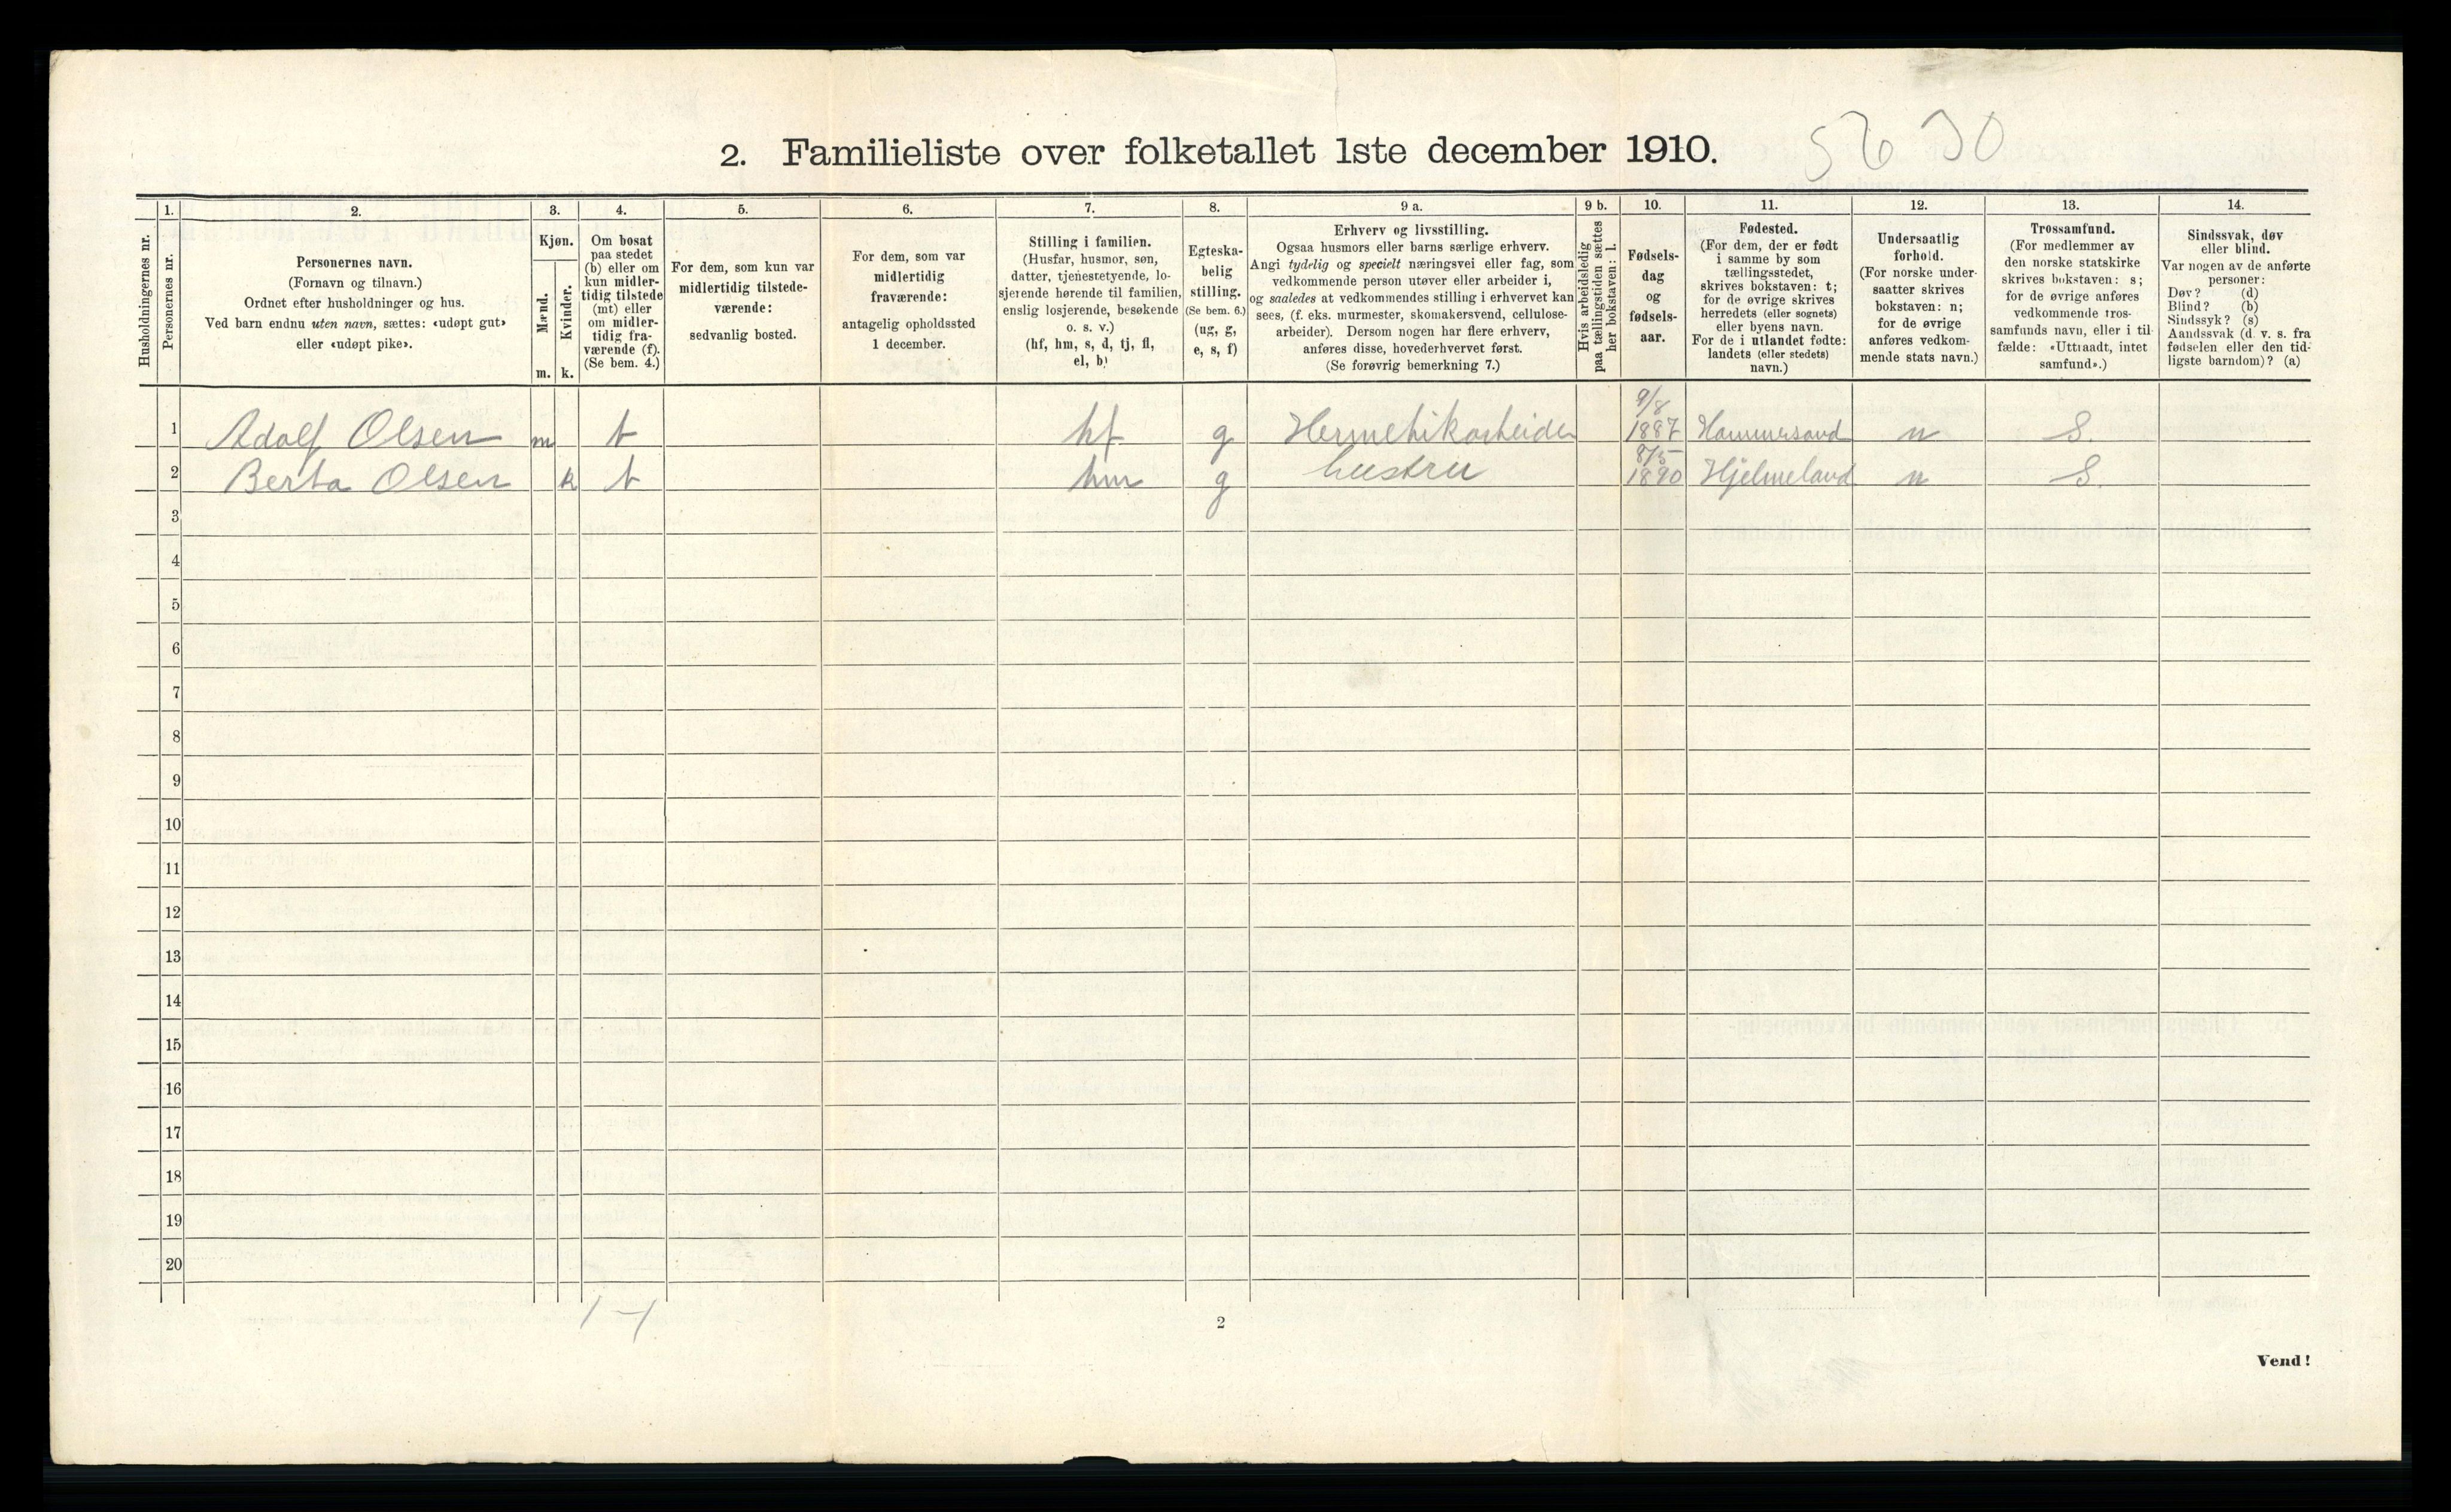 2. Familieliste over folketallet 1ste december 1910.
5630
Husholdningernes nr.
1.
Personernes nr.
2.
Personernes navn.
(Fornavn og tilnavn.)
Ordnet efter husholdninger og hus.
Ved barn endnu uten navn, sættes: «udøpt gut»
eller «udøpt pike».
3.
Kjøn.
Mænd.
m.
Kvinder.
k.
4.
Om bosat
paa stedet
(b) eller om
kun midler-
tidig tilstede
(mt) eller
om midler-
tidig fra-
værende (f).
(Se bem. 4.)
5.
For dem, som kun var
midlertidig tilstede-
værende:
sedvanlig bosted.
6.
For dem, som var
midlertidig
fraværende:
antagelig opholdssted
1 december.
7.
Stilling i familien.
(Husfar, husmor, søn,
datter, tjenestetyende, lo-
sjerende hørende til familien,
enslig losjerende, besøkende
o. s. v.)
(hf, hm, s, d, tj, fl,
el, b)
8.
Egteska-
belig
stilling.
(Se bem. 6.)
(ug, g,
e, s, f)
9 a.
Erhverv og livsstilling.
Ogsaa husmors eller barns særlige erhverv.
Angi tydelig og specielt næringsvei eller fag, som
vedkommende person utøver eller arbeider i,
og saaledes at vedkommendes stilling i erhvervet kan
sees, (f. eks. murmester, skomakersvend, cellulose-
arbeider). Dersom nogen har flere erhverv,
anføres disse, hovederhvervet først.
(Se forøvrig bemerkning 7.)
9 b.
Hvis arbeidsledig
paa tællingstiden sættes
her bokstaven: l.
10.
Fødsels-
dag
og
fødsels-
aar.
11.
Fødested.
(For dem, der er født
i samme by som
tællingsstedet,
skrives bokstaven: t;
for de øvrige skrives
herredets (eller sognets)
eller byens navn.
For de i utlandet fødte:
landets (eller stedets)
navn.)
12.
Undersaatlig
forhold.
(For norske under-
saatter skrives
bokstaven: n;
for de øvrige
anføres vedkom-
mende stats navn.)
13.
Trossamfund.
(For medlemmer av
den norske statskirke
skrives bokstaven: s;
for de øvrige anføres
vedkommende tros-
samfunds navn, eller i til-
fælde: «Uttraadt, intet
samfund».)
14.
Sindssvak, døv
eller blind.
Var nogen av de anførte
personer:
Døv? (d)
Blind? (b)
Sindssyk? (s)
Aandssvak (d. v. s. fra
fødselen eller den tid-
ligste barndom)? (a)
1 Adolf Olsen m t hf g Hermetikarbeider 9/8 1887 Hommersand n S.
2 Berta Olsen k t hm g hustru 8/5 1890 Hjelmeland n S.
3
4
5
6
7
8
9
10
11
12
13
14
15
16
17
18
19
20
1-1
2
Vend!